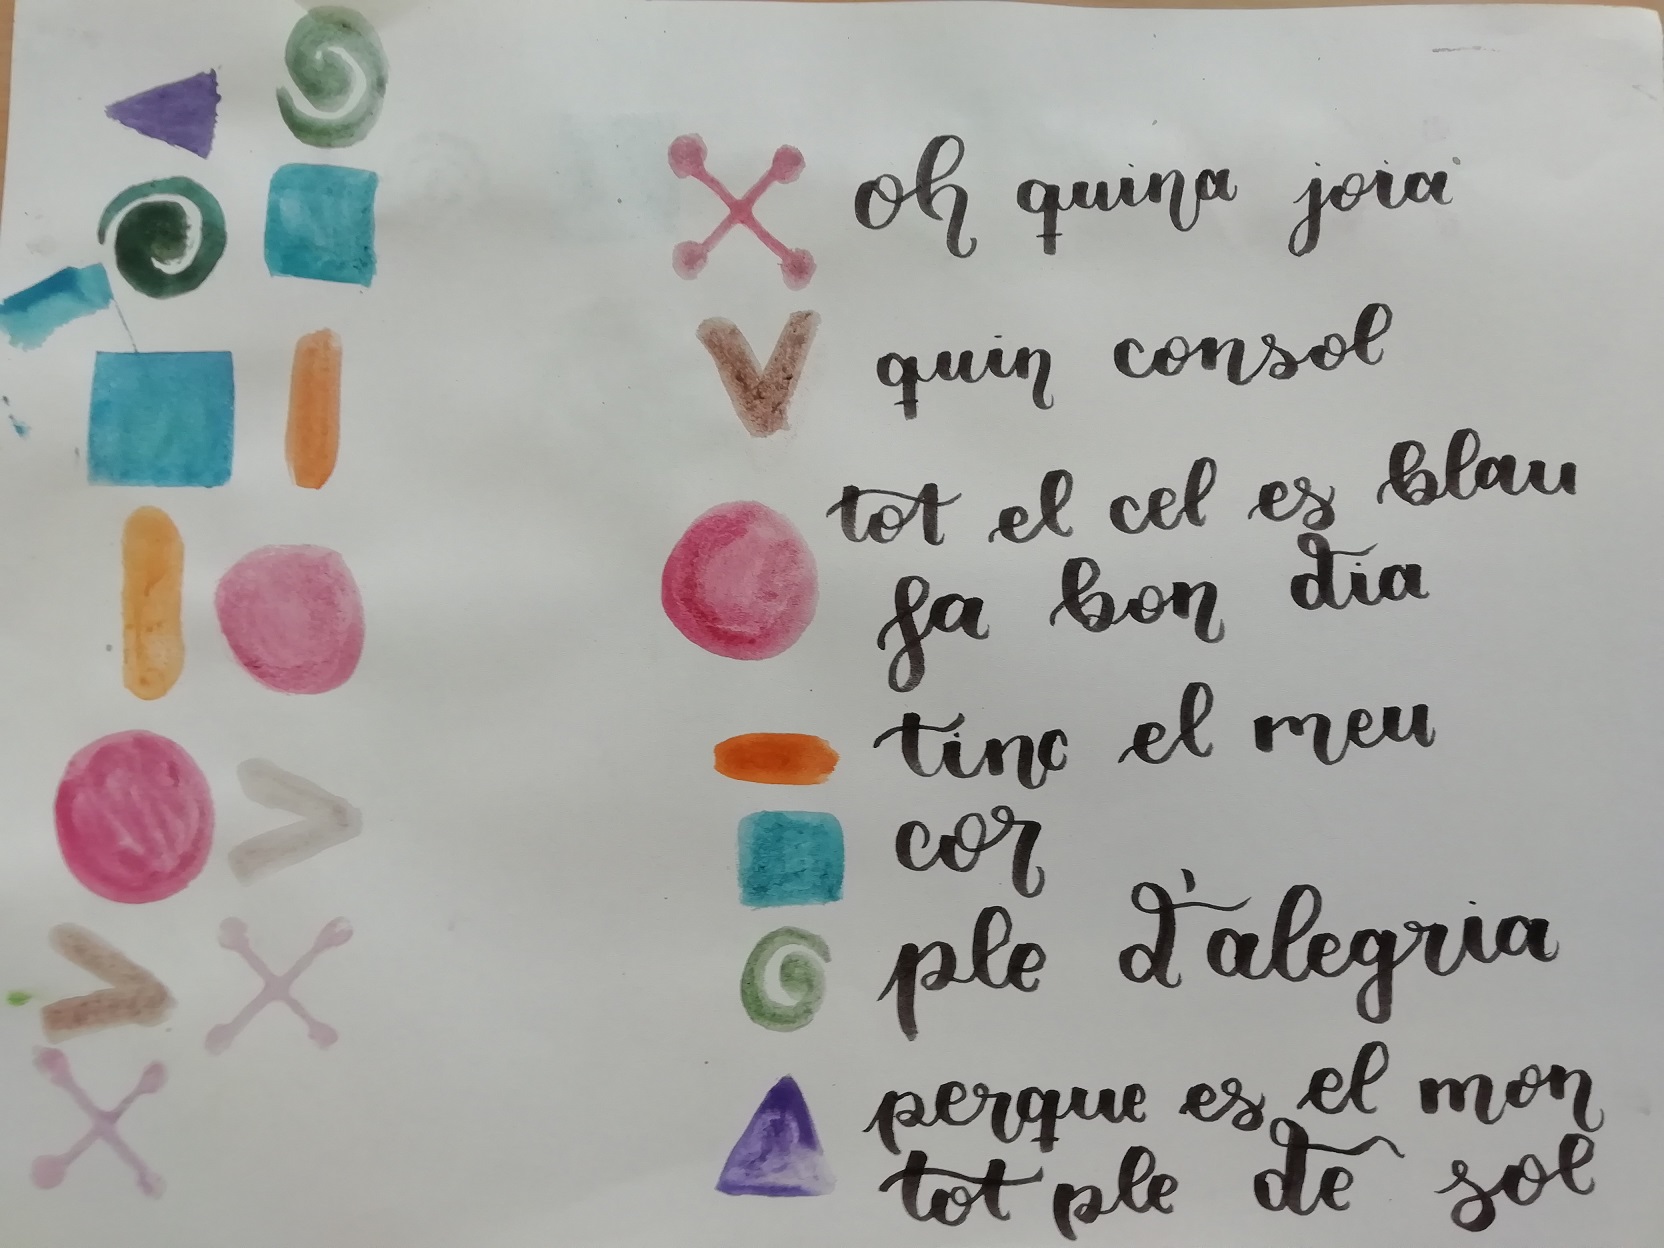 oh quina joia
quin consol
tot el cel es blau
fa bon dia
tinc el meu
cor
ple d'alegria
perque es el mon
tot ple de sol